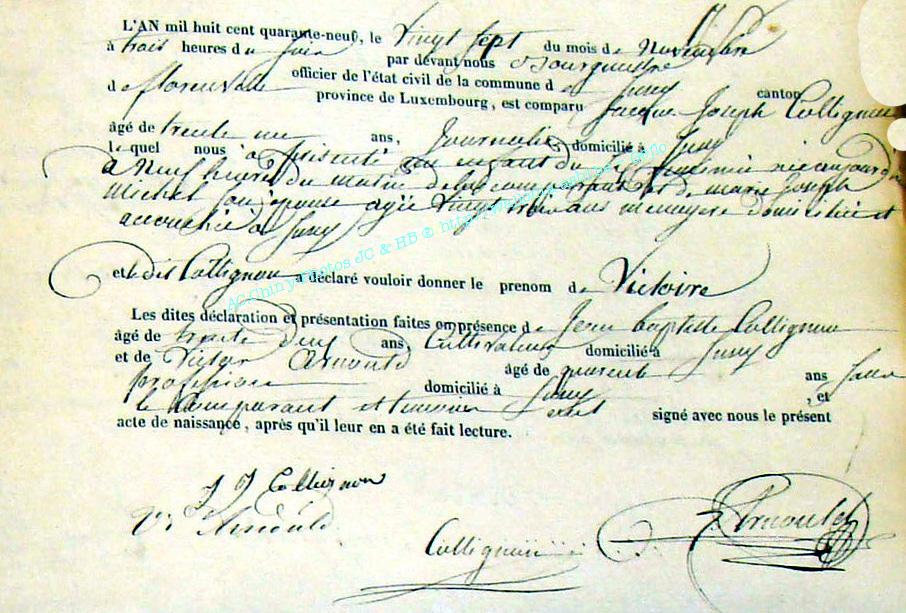 L'AN mil huit cent quarante-neuf, le Vingt Sept du mois de Novembre
à trois heures du Soir par devant nous Bourguestre
officier de l'état civil de la commune de Juny canton
de florenville province de Luxembourg, est comparu Jacque Joseph Collignon
âgé de trente un ans, Journalier domicilié à Juny
lequel nous a présenté un enfant du Sexe feminin né aujourd'hui
à Neuf heures du matin de lui comparant et de marie Joseph
Michel son épouse agée Vingt trois ans menagere domiciliée et
accouchée à Juny
et le dit Collignon a déclaré vouloir donner le prenom de Victoire
Les dites déclaration et présentation faites en présence de Jean Baptiste Collignon
âgé de trente deux ans Cultivateur domicilié à Juny
et de Victor Arnould âgé de quarente ans Sans
profession domicilié à Juny, et
le Comparant et temoins ont signé avec nous le présent
acte de naissance, après qu'il leur en a été fait lecture.
J J Collignon
Vr Arnould
Collignon
J. Arnould
AC Chiny Photos JC & HB ©